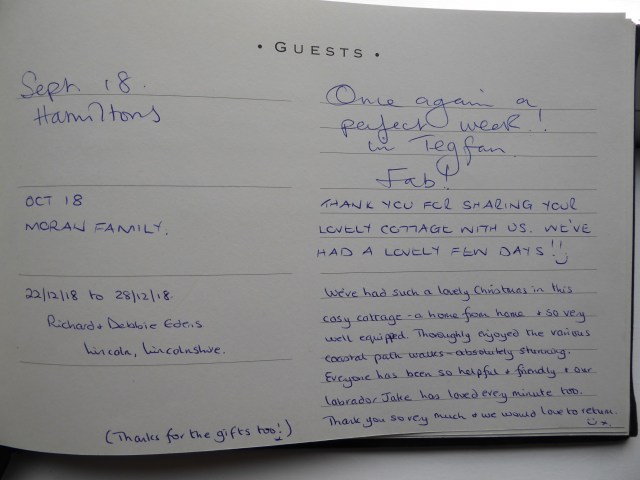 • GUESTS •
Sept 18.
Hamiltons
Once again a
perfect week!!
in Tegfan.
Fab!
OCT 18
MORAN FAMILY.
THANK YOU FOR SHARING YOUR
LOVELY COTTAGE WITH US. WE'VE
HAD A LOVELY FEW DAYS!!
22/12/18 to 28/12/18.
Richard + Debbie
Lincoln, Lincolnshire.
(Thanks for the gifts too!)
We've had such a lovely Christmas in this
cosy cottage - a home from home + so very
well equipped. Thoroughly enjoyed the various
coastal path walks - absolutely stunning.
Everyone has been so helpful + friendly + our
labrador Jake has loved every minute too.
Thank you so very much + we would love to return.
x